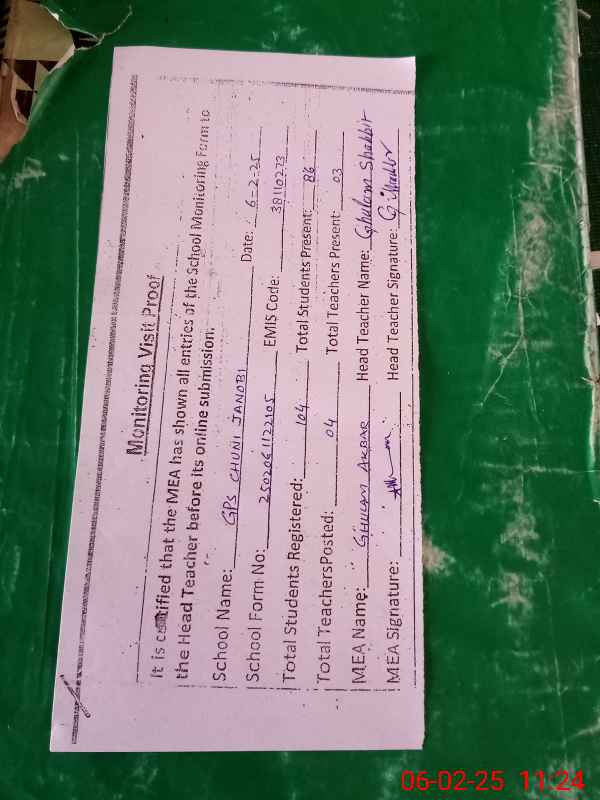 Monitoring Visit Proof
It is certified that the MEA has shown all entries of the School Monitoring Form to
the Head Teacher before its online submission.
School Name: GPS CHUNI JANOBI Date: 6-2-25
School Form No: 2502061122105 EMIS Code: 38110273
Total Students Registered: 104 Total Students Present: 86
Total TeachersPosted: 04 Total Teachers Present: 03
MEA Name: GHULAM AKBAR Head Teacher Name: Ghulam Shabbir
MEA Signature: Head Teacher Signature:
06-02-25 11:24